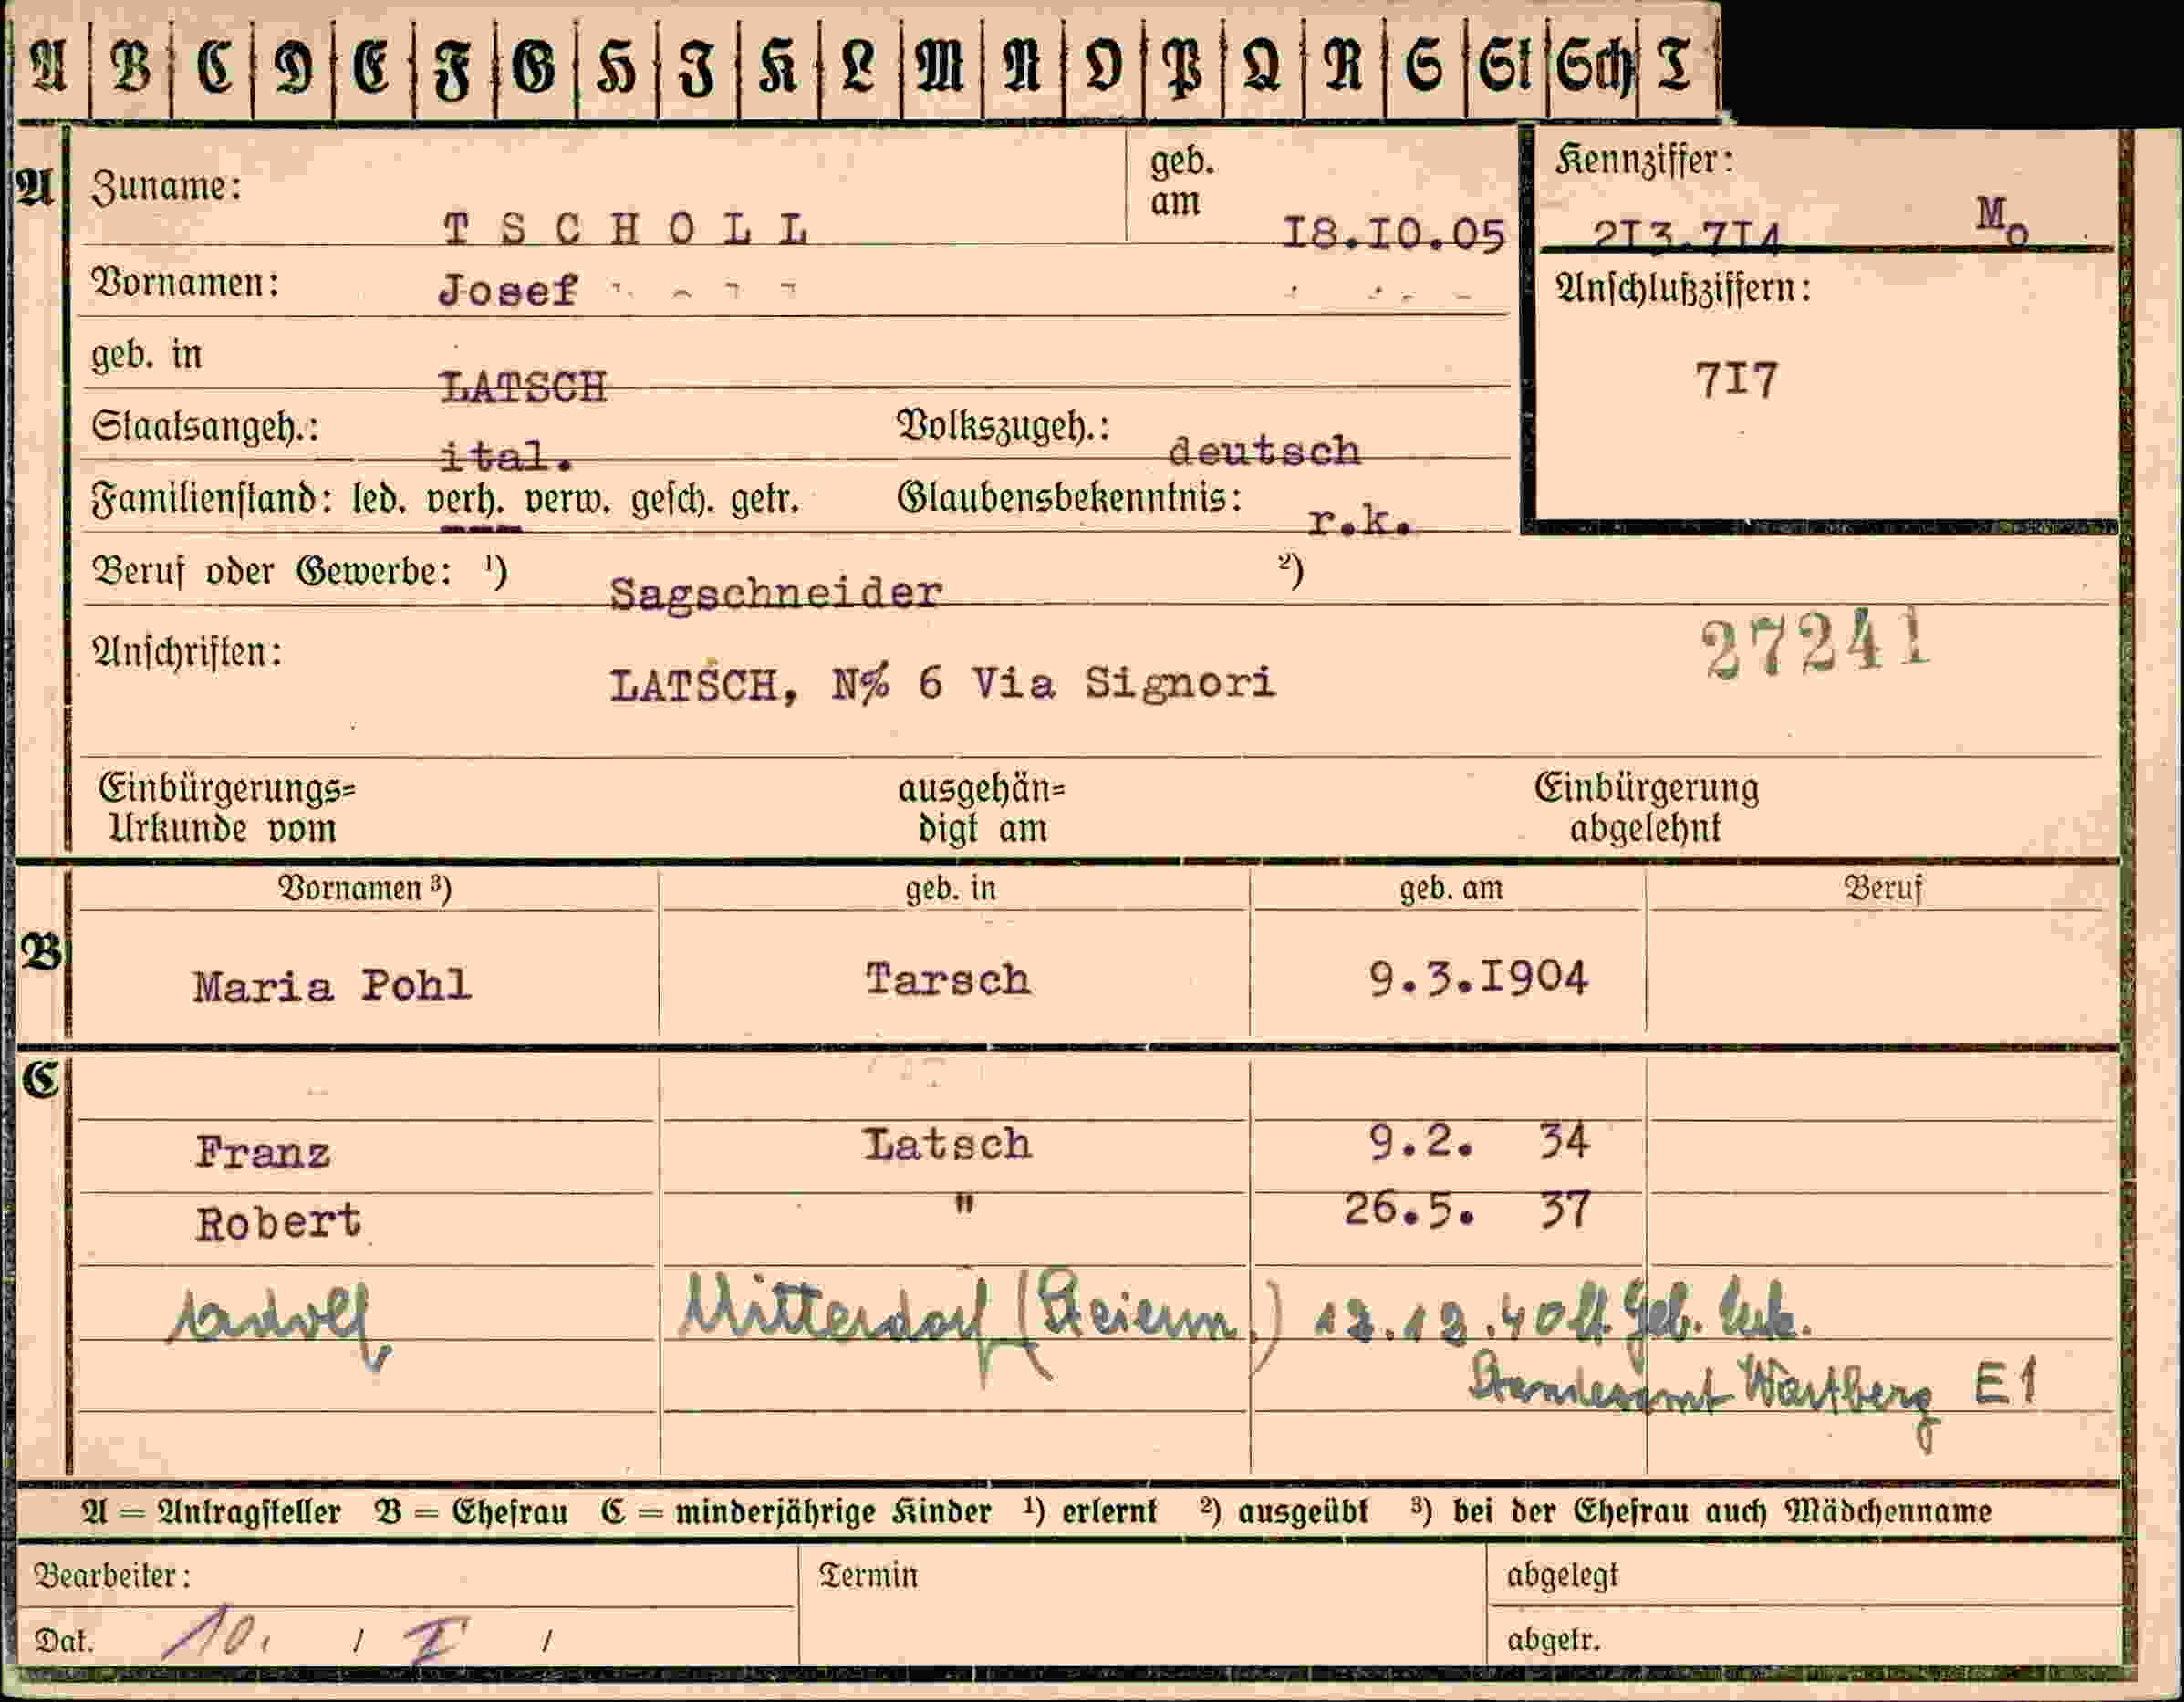 A B C D E F G H J K L M N O P Q R S St Sch T
A Zuname: TSCHOLL geb. am 18.10.05 Kennziffer: 213.714 Mo
Vornamen: Josef Anschlußziffern:
geb. in LATSCH 717
Staatsangeh.: ital. Volkszugeh.: deutsch
Familienstand: led. verh. verw. gesch. getr. Glaubensbekenntnis: r.k.
Beruf oder Gewerbe: ¹) Sagschneider ²)
27241
Anschriften: LATSCH, N% 6 Via Signori
Einbürgerungs= ausgehän= Einbürgerung
Urkunde vom digt am abgelehnt
Vornamen ³) geb. in geb. am Beruf
B Maria Pohl Tarsch 9.3.1904
C
Franz Latsch 9.2. 34
Robert " 26.5. 37
Adolf Mitterdorf (Steierm.) 12.12.40 lt. Geb. Urk.
Standesamt Wartberg E1
A = Antragsteller B = Ehefrau C = minderjährige Kinder ¹) erlernt ²) ausgeübt ³) bei der Ehefrau auch Mädchenname
Bearbeiter: Termin abgelegt
Dat. 10. / I / abgetr.